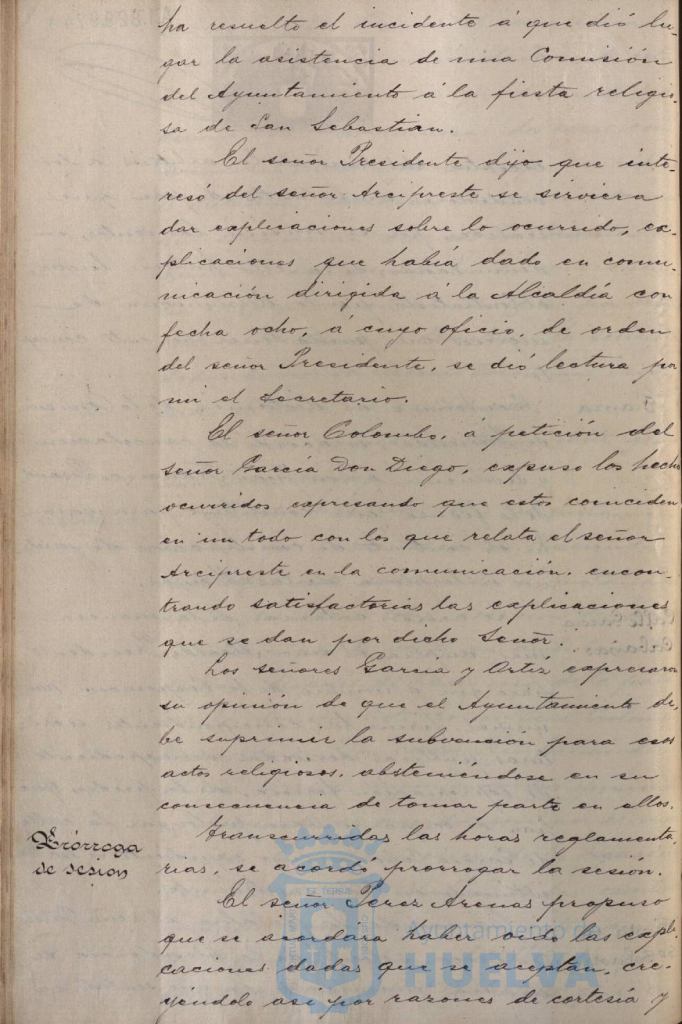 ha resuelto el incidente á que dió lu-
gar la asistencia de una Comisión
del Ayuntamiento á la fiesta religio-
sa de San Sebastian.
El señor Presidente dijo que inte-
resó del señor Arcipreste se sirviera
dar explicaciones sobre lo ocurrido, ex-
plicaciones que había dado en comu-
nicación dirigida á la Alcaldía con
fecha ocho, á cuyo oficio, de orden
del señor Presidente, se dió lectura por
mi el Secretario.
El señor Colombo, á petición del
señor García Don Diego, expuso los hechos
ocurridos expresando que estos coinciden
en un todo con los que relata el señor
Arcipreste en la comunicación, encon-
trando satisfactorias las explicaciones
que se dan por dicho Señor.
Los señores García y Ortíz expresaron
su opinión de que el Ayuntamiento de-
be suprimir la subvención para esos
actos religiosos, absteniéndose en su
consecuencia de tomar parte en ellos.
Prórroga
de sesion
Transcurridas las horas reglamenta-
rias, se acordó prorrogar la sesión.
El señor Perez Arenas propuso
que se acordára haber oido las expli-
caciones dadas que se aceptan, cre-
yéndolo así por razones de cortesía y
Ayuntamiento de
HUELVA